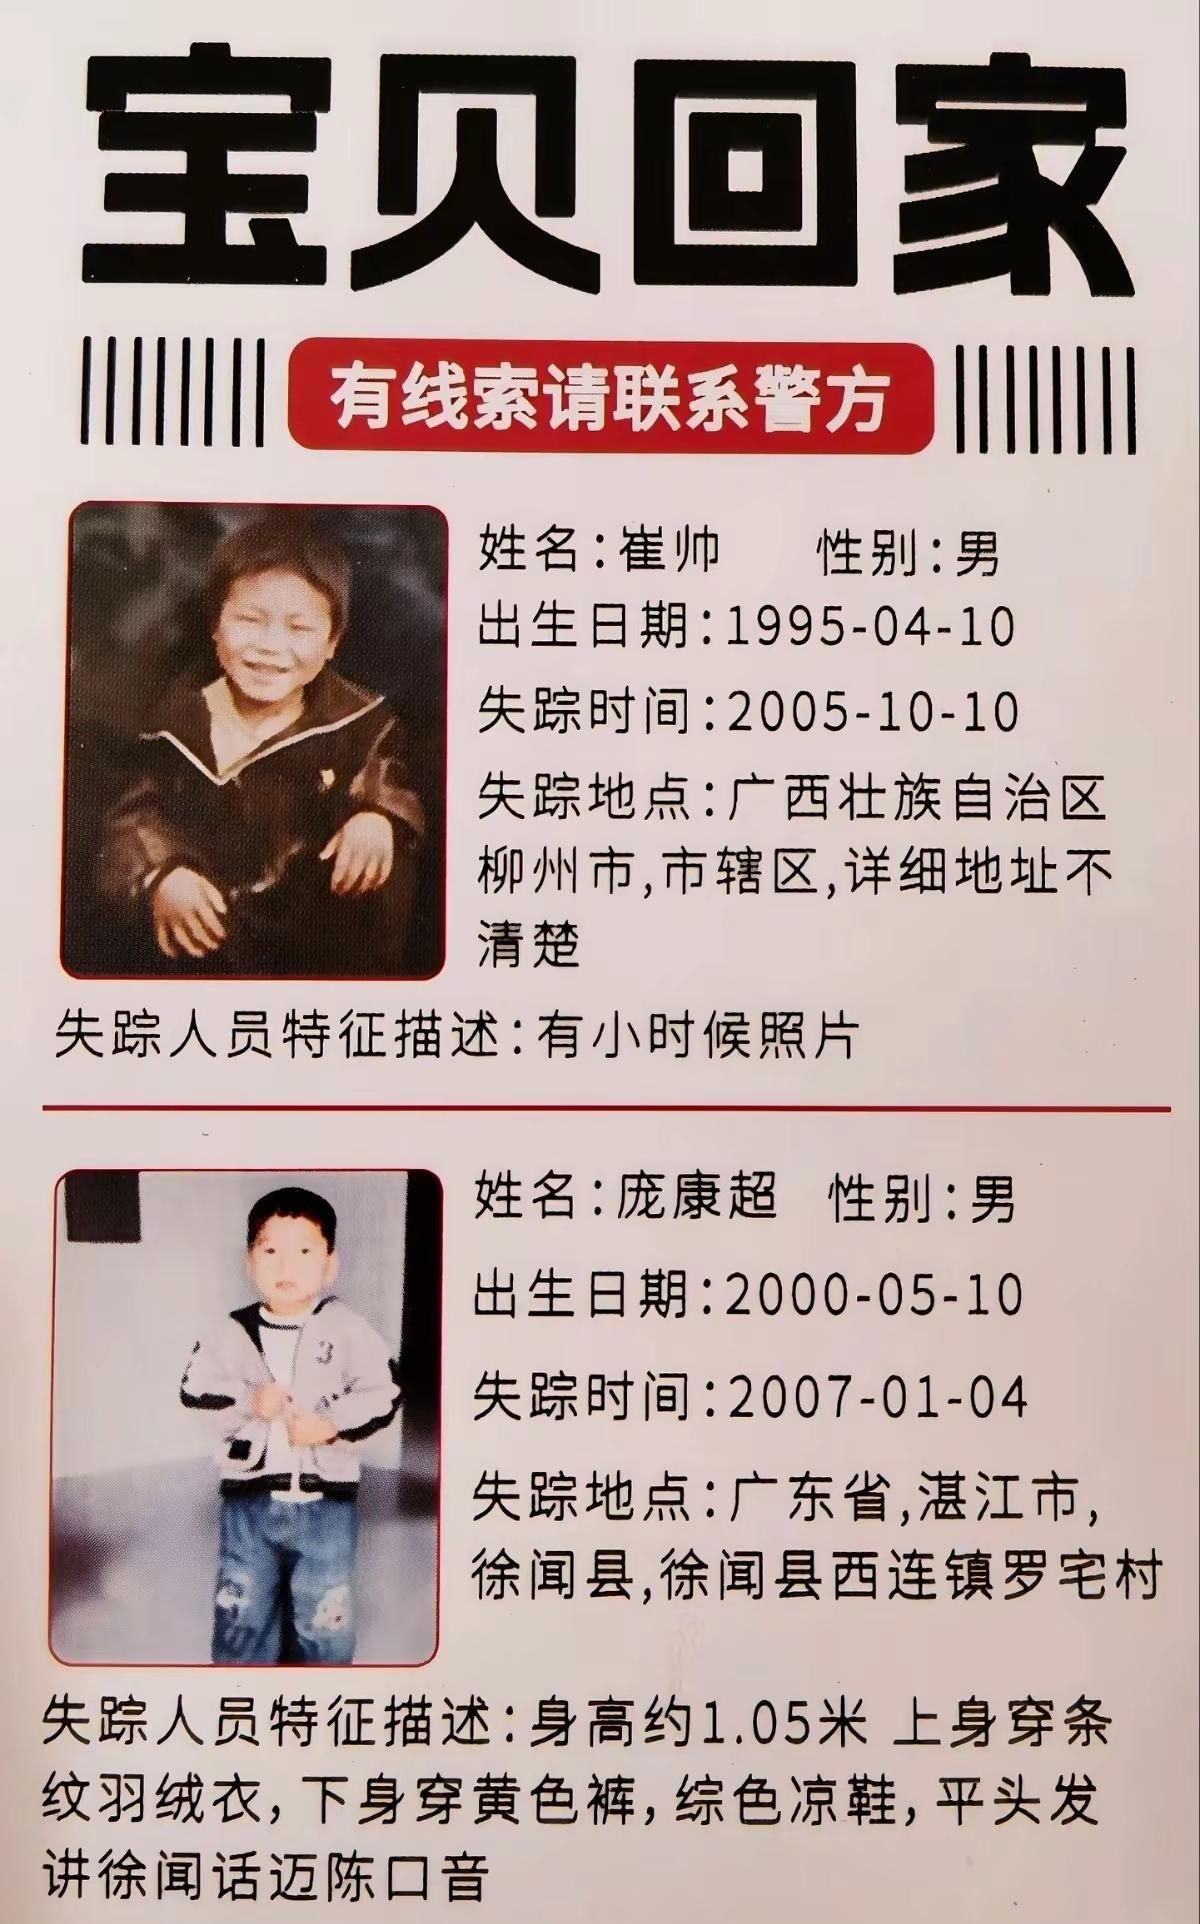 宝贝回家
有线索请联系警方
姓名:崔帅 性别:男
出生日期:1995-04-10
失踪时间:2005-10-10
失踪地点:广西壮族自治区
柳州市,市辖区,详细地址不
清楚
失踪人员特征描述:有小时候照片
姓名:庞康超 性别:男
出生日期:2000-05-10
失踪时间:2007-01-04
失踪地点:广东省,湛江市,
徐闻县,徐闻县西连镇罗宅村
3
失踪人员特征描述:身高约1.05米 上身穿条
纹羽绒衣,下身穿黄色裤,综色凉鞋,平头发
讲徐闻话迈陈口音